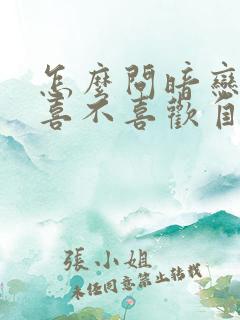 怎麼問暗戀
喜不喜歡自
張小姐
未任同意禁止转载